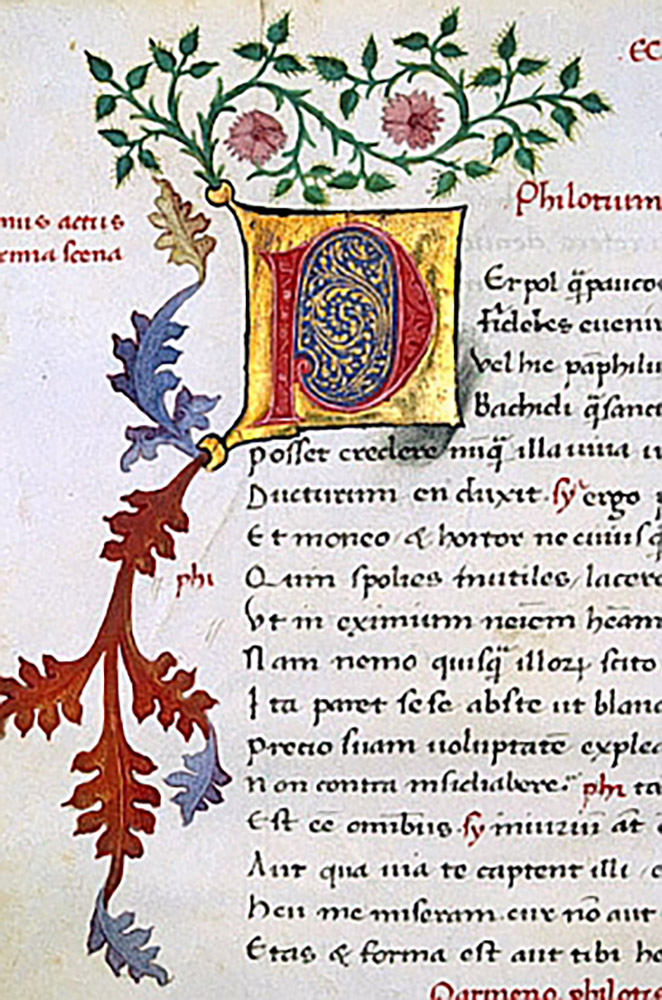 EC
Philotium
mus actus
rima scena
P
Er pol q̃ pauco
fideles eueni
Vel hic pãphilu
Bachidi q̃ sanct
posset credere nuq̃ illa uiua u
Ducturum en duxit. sy ergo p
Et moneo & hortor ne cuiusq̃
Quin spolies mutiles / lacere
phi
Vt in eximium neiem heam
Nam nemo quisq̃ illoꝝ scito
Ita paret sese abste ut bland
precio suam uoluptatẽ explea
non contra insidiabere. phi ta
Est eẽ omnibus. sy iniuriũ at
Aut qua uia te captent illi
heu me miseram. cur nõ aut
Etas & forma est aut tibi h
Parmeno. philotis